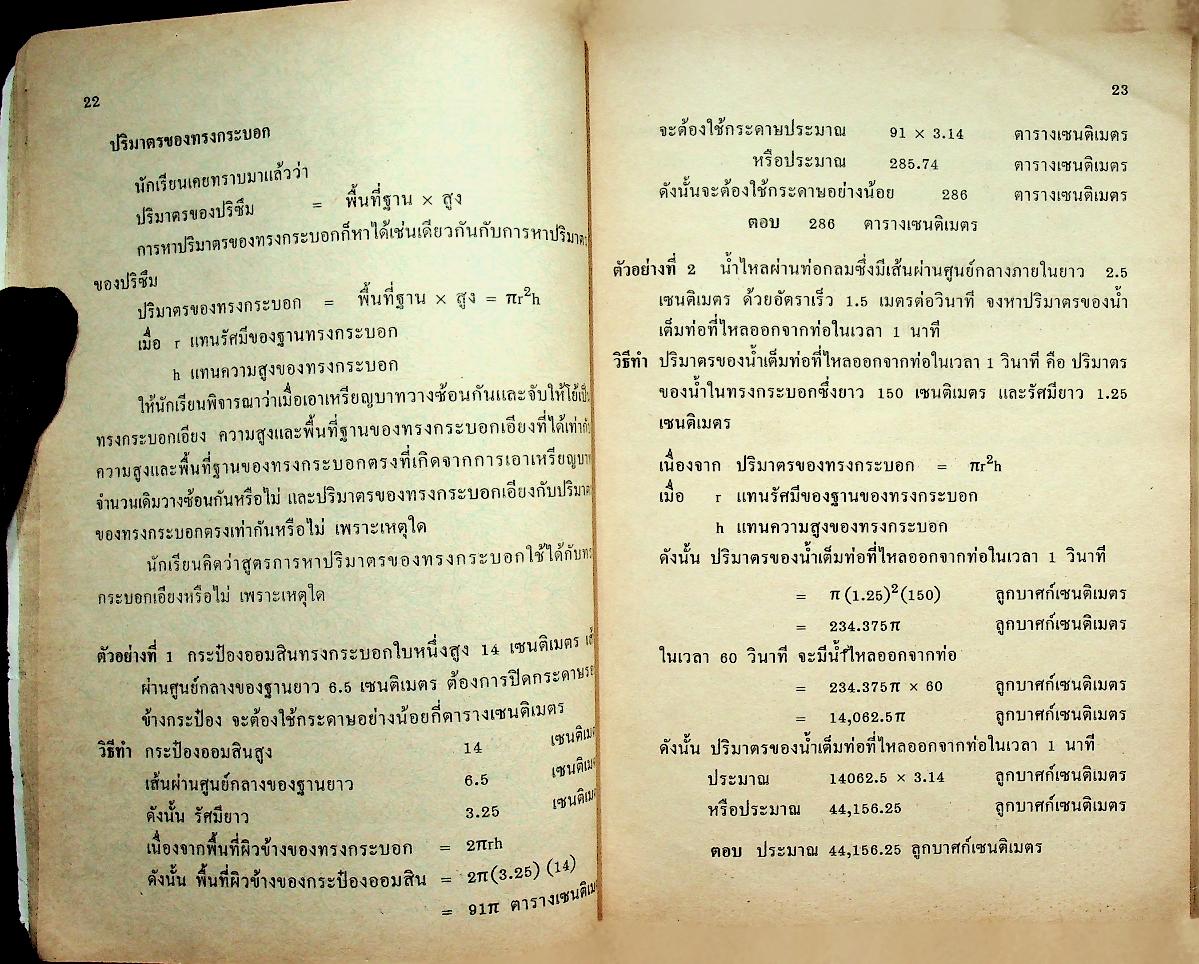 22
ปริมาตรของทรงกระบอก
นักเรียนเคยทราบมาแล้วว่า
ปริมาตรของปริซึม = พื้นที่ฐาน × สูง
การหาปริมาตรของทรงกระบอกก็หาได้เช่นเดียวกันกับการหาปริมาตร
ของปริซึม
ปริมาตรของทรงกระบอก = พื้นที่ฐาน × สูง = πr²h
เมื่อ r แทนรัศมีของฐานทรงกระบอก
h แทนความสูงของทรงกระบอก
ให้นักเรียนพิจารณาว่าเมื่อเอาเหรียญบาทวางซ้อนกันและจับให้โย้
ทรงกระบอกเอียง ความสูงและพื้นที่ฐานของทรงกระบอกเอียงที่ได้
ความสูงและพื้นที่ฐานของทรงกระบอกตรงที่เกิดจากการเอาเหรียญ
จำนวนเดิมวางซ้อนกันหรือไม่ และปริมาตรของทรงกระบอกเอียงกับ
ของทรงกระบอกตรงเท่ากันหรือไม่ เพราะเหตุใด
นักเรียนคิดว่าสูตรการหาปริมาตรของทรงกระบอกใช้ได้กับ
กระบอกเอียงหรือไม่ เพราะเหตุใด
ตัวอย่างที่ 1 กระป๋องออมสินทรงกระบอกใบหนึ่งสูง 14 เซนติเมตร
ผ่านศูนย์กลางของฐานยาว 6.5 เซนติเมตร ต้องการปิดกระดาษ
ข้างกระป๋อง จะต้องใช้กระดาษอย่างน้อยกี่ตารางเซนติเมตร
วิธีทำ กระป๋องออมสินสูง 14
เส้นผ่านศูนย์กลางของฐานยาว 6.5
ดังนั้น รัศมียาว 3.25
เนื่องจากพื้นที่ผิวข้างของทรงกระบอก = 2πrh
ดังนั้น พื้นที่ผิวข้างของกระป๋องออมสิน = 2π(3.25) (14)
= 91π
23
จะต้องใช้กระดาษประมาณ 91 × 3.14 ตารางเซนติเมตร
หรือประมาณ 285.74 ตารางเซนติเมตร
ดังนั้นจะต้องใช้กระดาษอย่างน้อย 286 ตารางเซนติเมตร
ตอบ 286 ตารางเซนติเมตร
ตัวอย่างที่ 2 น้ำไหลผ่านท่อกลมซึ่งมีเส้นผ่านศูนย์กลางภายในยาว 2.5
เซนติเมตร ด้วยอัตราเร็ว 1.5 เมตรต่อวินาที จงหาปริมาตรของน้ำ
เต็มท่อที่ไหลออกจากท่อในเวลา 1 นาที
วิธีทำ ปริมาตรของน้ำเต็มท่อที่ไหลออกจากท่อในเวลา 1 วินาที คือ ปริมาตร
ของน้ำในทรงกระบอกซึ่งยาว 150 เซนติเมตร และรัศมียาว 1.25
เซนติเมตร
เนื่องจาก ปริมาตรของทรงกระบอก = πr²h
เมื่อ r แทนรัศมีของฐานของทรงกระบอก
h แทนความสูงของทรงกระบอก
ดังนั้น ปริมาตรของน้ำเต็มท่อที่ไหลออกจากท่อในเวลา 1 วินาที
= π (1.25)²(150) ลูกบาศก์เซนติเมตร
= 234.375π ลูกบาศก์เซนติเมตร
ในเวลา 60 วินาที จะมีน้ำไหลออกจากท่อ
= 234.375π × 60 ลูกบาศก์เซนติเมตร
= 14,062.5π ลูกบาศก์เซนติเมตร
ดังนั้น ปริมาตรของน้ำเต็มท่อที่ไหลออกจากท่อในเวลา 1 นาที
ประมาณ 14062.5 × 3.14 ลูกบาศก์เซนติเมตร
หรือประมาณ 44,156.25 ลูกบาศก์เซนติเมตร
ตอบ ประมาณ 44,156.25 ลูกบาศก์เซนติเมตร